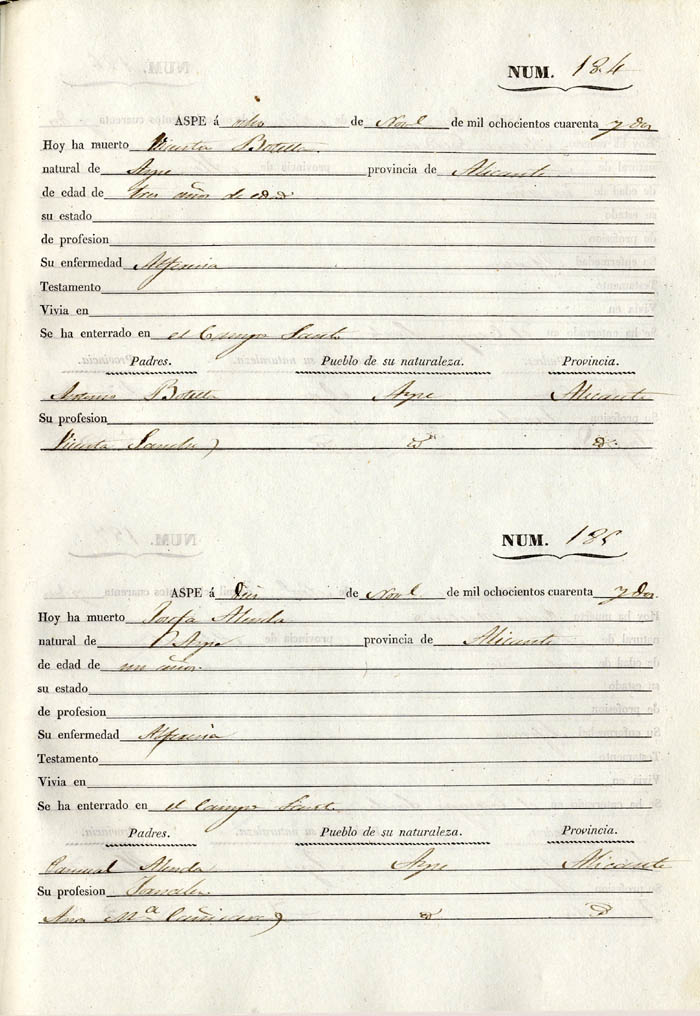 NUM. 184
ASPE á ocho de Novl de mil ochocientos cuarenta y dos
Hoy ha muerto Vicenta Botella
natural de Aspe provincia de Alicante
de edad de tres años de edad
su estado
de profesion
Su enfermedad Alferecia
Testamento
Vivia en
Se ha enterrado en el Campo Santo
Padres. Pueblo de su naturaleza. Provincia.
Antonio Botella Aspe Alicante
Su profesion
Vicenta Sanchez id id
NUM. 185
ASPE á Dies de Novl de mil ochocientos cuarenta y dos
Hoy ha muerto Josefa Alenda
natural de Aspe provincia de Alicante
de edad de un años
su estado
de profesion
Su enfermedad Alferecia
Testamento
Vivia en
Se ha enterrado en el Campo Santo
Padres. Pueblo de su naturaleza. Provincia.
Alenda Aspe Alicante
Su profesion Jornalero
Ana Mª id id